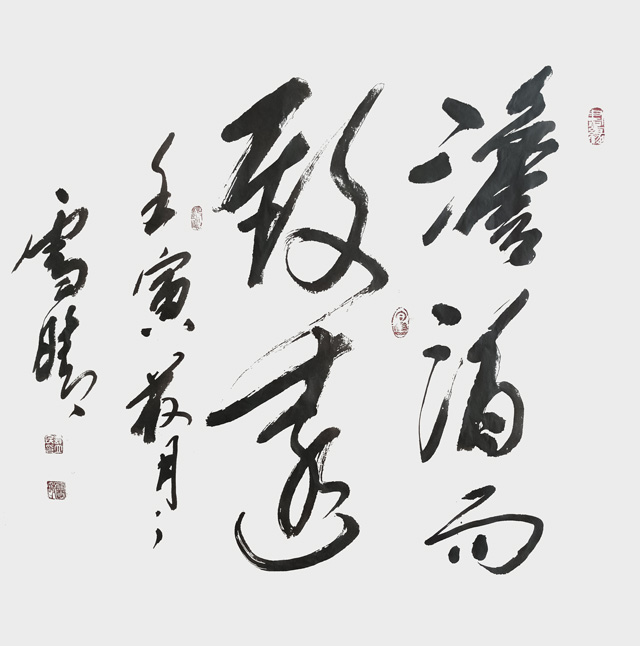 澹泊而
致遠
壬寅月
雪晴